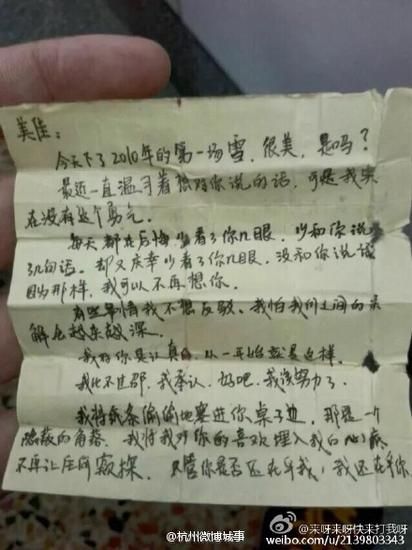 美佳:
今天下了2010年的第一场雪,很美,是吗?
最近一直温习着想对你说的话,可是我实
在没有这个勇气。
每天都在后悔少看了你几眼,少和你说
几句话。却又庆幸少看了你几眼,没和你说话
因为那样,我可以不再想你。
有些事情我不想反驳。我怕我们之间的误
解会越来越深。
我对你是认真的,从一开始就是这样。
我比不过邵,我承认,好吧,我该努力了。
我将纸条偷偷地塞进你桌子边,那是一个
隐蔽的角落。我将我对你的喜欢埋入我的心底
不再让任何窥探。只管你是否还在乎我,我还在乎你
@杭州微博城事
@来呀来呀快来打我呀
weibo.com/u/2139803343